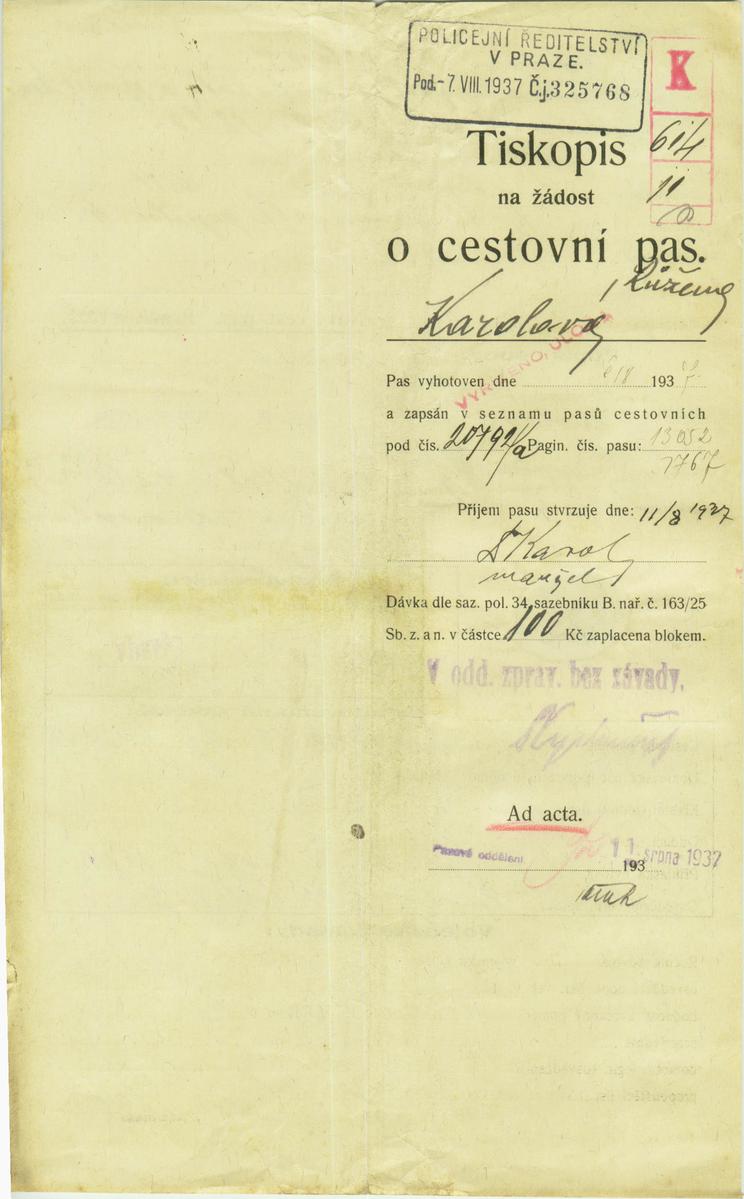 POLICEJNÍ ŘEDITELSTVÍ
V PRAZE.
Pod.-7.VIII.1937 Č.j.325768
K
614
11
Tiskopis
na žádost
o cestovní pas.
Karolová, Růžena
VYŘÍZENO, ULOŽ
Pas vyhotoven dne 1937
a zapsán v seznamu pasů cestovních
pod čís. 20792/a Pagin. čís. pasu: 13052
1767
Příjem pasu stvrzuje dne: 11/8 1937
Karol
manžel
Dávka dle saz. pol. 34 sazebníku B. nař. č. 163/25
Sb. z. a n. v částce 100 Kč zaplacena blokem.
V odd. zprav. bez závady.
Ad acta.
Pasové oddělení 11. srpna 1937
193